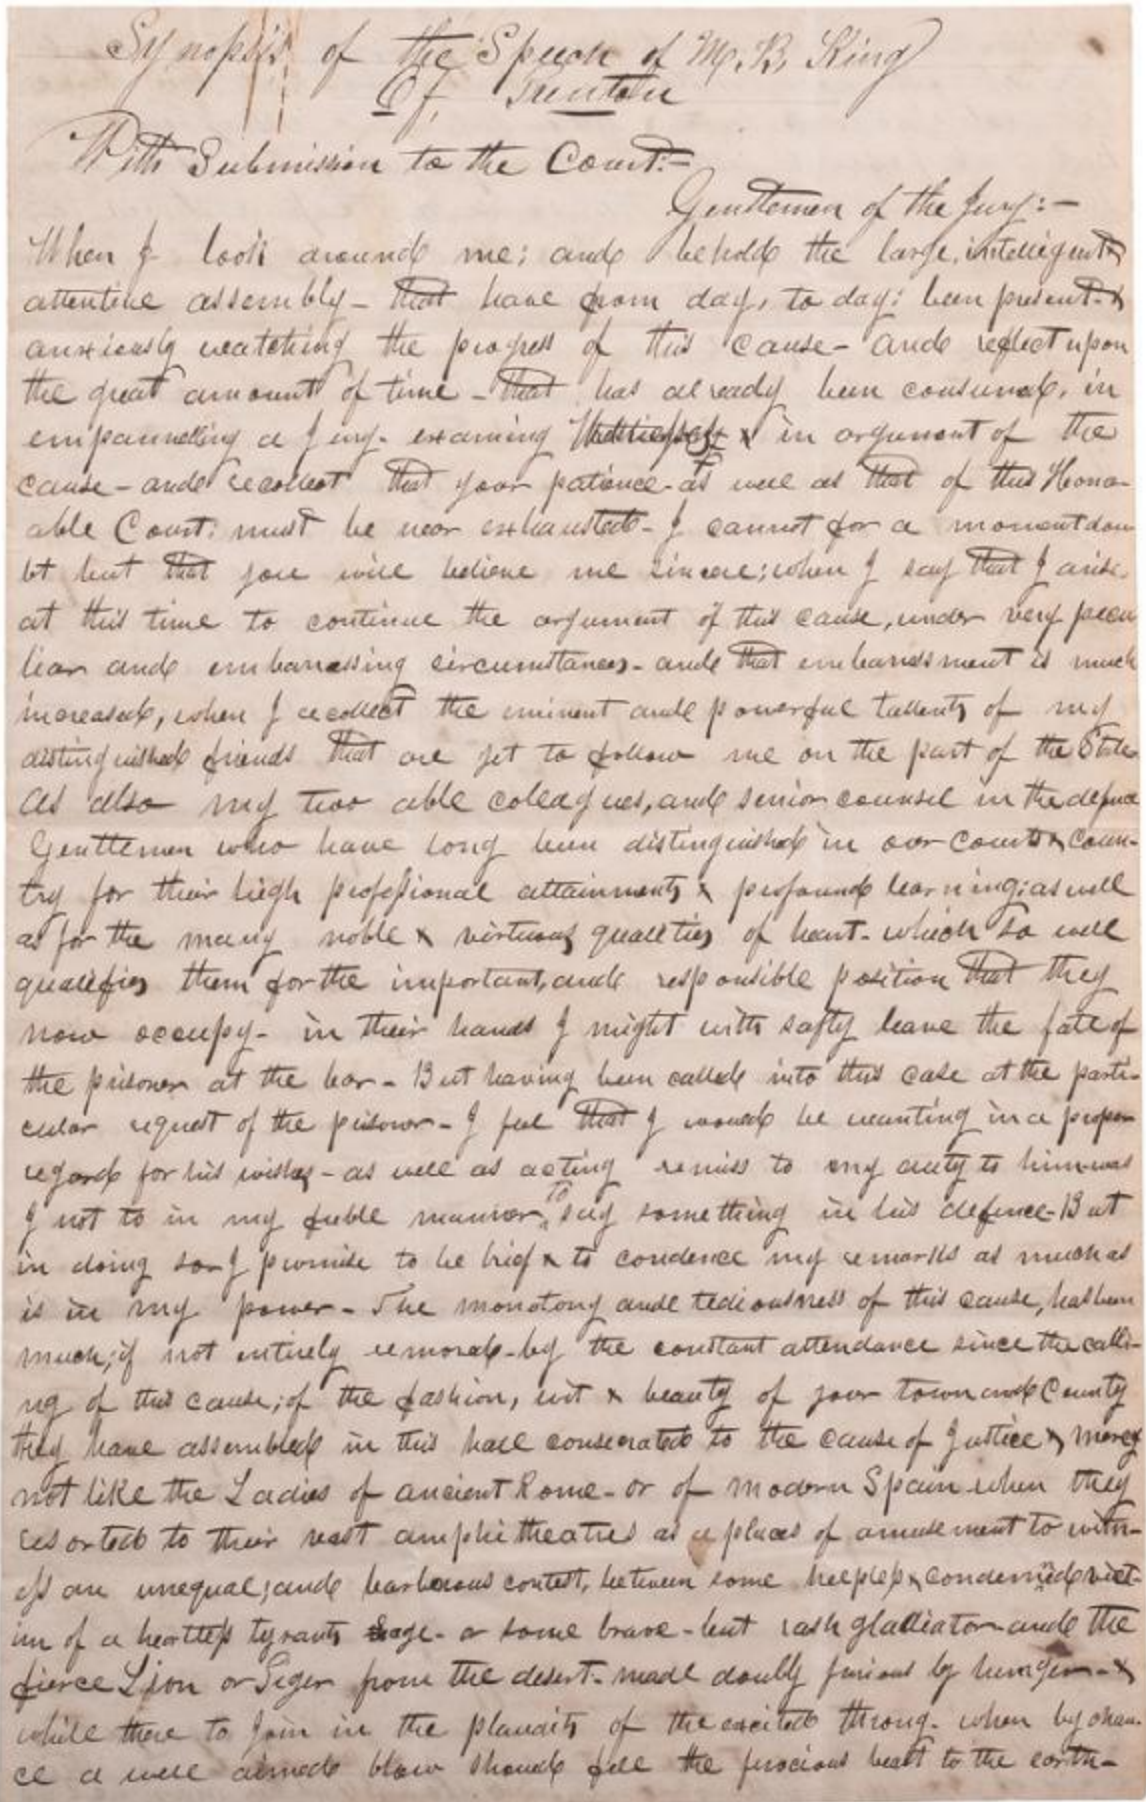 Synopsis of the Speech of M. B. King
Of Trenton
With Submission to the Court:-
Gentlemen of the Jury:-
When I look around me; and behold the large, intelligent &
attentive assembly - that have from day, to day; been present - &
anxiously watching the progress of this cause - and reflect upon
the great amount of time - that has already been consumed, in
empannelling a Jury - examing & in argument of the
cause - and recollect that your patience - as well as that of this Honor-
able Court; must be near exhausted - I cannot for a moment dou
bt but that you will believe me sincere; when I say that I arise,
at this time to continue the argument of this cause, under very pecu
liar and embarrassing circumstances - and that embarrassment is much
increased, when I recollect the eminent and powerful tallents of my
distinguished friends that are yet to follow me on the part of the State
As also my two able coleagues, and senior counsel in the defence
Gentlemen who have long been distinguished in our Courts & Coun-
try for their high professional attainments & profound learning; as well
as for the many noble & virtuous qualities of heart - which so well
qualifies them for the important, and responsible position that they
now occupy - in their hands I might with safty leave the fate of
the prisoner at the bar - But having been called into this case at the parti-
cular request of the prisoner - I feel that I would be wanting in a proper
regard for his wishes - as well as acting remiss to my duty to him - was
I not to in my feble manner, to say something in his defence - But
in doing so - I promise to be brief & to condence my remarks as much as
is in my power - The monotony and tediousness of this cause, has been
much; if not entirely removed - by the constant attendance since the calli-
ng of this cause; of the fashion, wit & beauty of your town and County
they have assembled in this hall consecrated to the cause of Justice & mercy
not like the Ladies of ancient Rome - or of modern Spain - when they
resorted to their vast amphitheatres as places of amusement to witn-
ess an unequal; and barbarous contest, between some helpless & condemned vict-
im of a heartless tyrants rage - or some brave - but rash gladiator and the
fierce Lion or Tiger from the desert - made doubly furious by hunger - &
while there to Join in the plaudits of the excited throng - when by chan-
ce a well aimed blow should fell the ferocious beast to the earth -